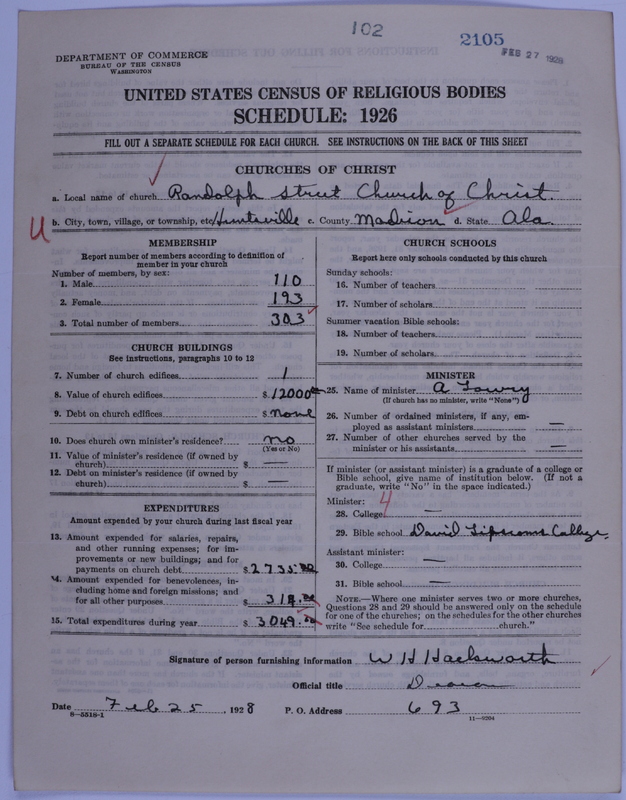 102
2105
FEB 27 1928
DEPARTMENT OF COMMERCE
BUREAU OF THE CENSUS
WASHINGTON
UNITED STATES CENSUS OF RELIGIOUS BODIES
SCHEDULE: 1926
FILL OUT A SEPARATE SCHEDULE FOR EACH CHURCH. SEE INSTRUCTIONS ON THE BACK OF THIS SHEET
CHURCHES OF CHRIST
a. Local name of church Randolph Street Church of Christ.
U b. City, town, village, or township, etc. Huntsville c. County Madison d. State Ala.
MEMBERSHIP
Report number of members according to definition of
member in your church
Number of members, by sex:
1. Male 110
2. Female 193
3. Total number of members 303
CHURCH BUILDINGS
See instructions, paragraphs 10 to 12
7. Number of church edifices 1
8. Value of church edifices $ 12000.00
9. Debt on church edifices $ None
10. Does church own minister's residence? no
(Yes or No)
11. Value of minister's residence (if owned by
church) $ —
12. Debt on minister's residence (if owned by
church) $ —
EXPENDITURES
Amount expended by your church during last fiscal year
13. Amount expended for salaries, repairs,
and other running expenses; for im-
provements or new buildings; and for
payments on church debt $ 2735.00
14. Amount expended for benevolences, in-
cluding home and foreign missions; and
for all other purposes $
15. Total expenditures during year $ 3049.00
CHURCH SCHOOLS
Report here only schools conducted by this church
Sunday schools:
16. Number of teachers
17. Number of scholars
Summer vacation Bible schools:
18. Number of teachers
19. Number of scholars
MINISTER
25. Name of minister A Lowry
(If church has no minister, write "None")
26. Number of ordained ministers, if any, em-
ployed as assistant ministers —
27. Number of other churches served by the
minister or his assistants —
If minister (or assistant minister) is a graduate of a college or
Bible school, give name of institution below. (If not a
graduate, write "No" in the space indicated.)
Minister: 4
28. College —
29. Bible school David Lipscomb College.
Assistant minister:
30. College —
31. Bible school —
NOTE.—Where one minister serves two or more churches,
Questions 28 and 29 should be answered only on the schedule
for one of the churches; on the schedules for the other churches
write "See schedule for church."
Signature of person furnishing information W H Hacksworth
Official title Deacon
Date Feb 25, 1928 P. O. Address 693
8—5518-1
11—9204